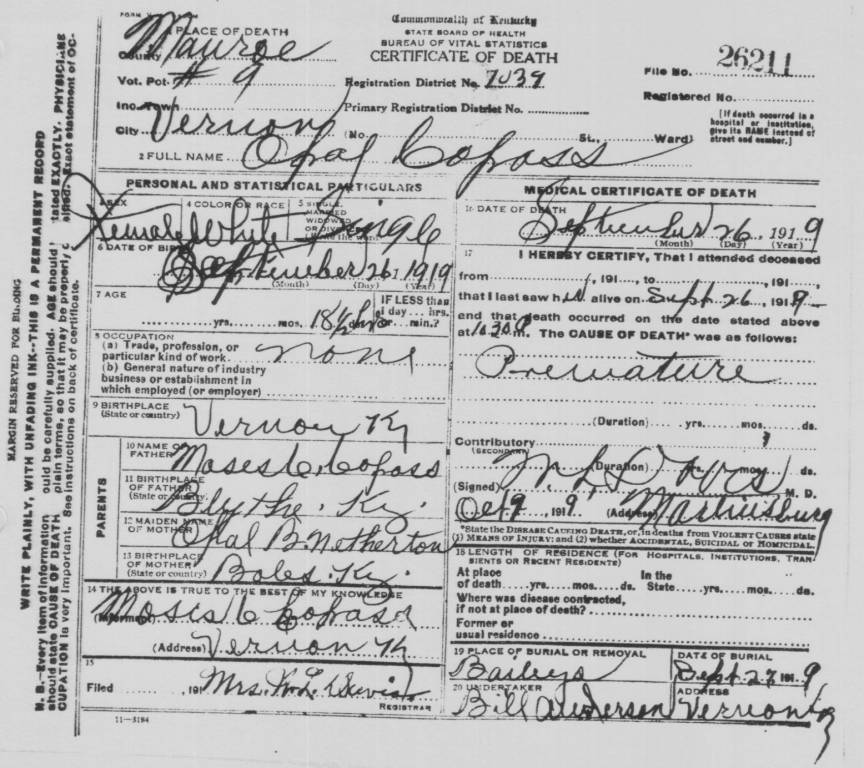 Commonwealth of Kentucky
STATE BOARD OF HEALTH
BUREAU OF VITAL STATISTICS
CERTIFICATE OF DEATH
PLACE OF DEATH
County Monroe
Vot. Pct. # 9
Inc. Town
City Vernon
Registration District No. 1039
Primary Registration District No.
(No. St., Ward)
File No. 26211
Registered No.
[If death occurred in a
hospital or institution,
give its NAME instead of
street and number.]
2 FULL NAME Opal Copass
PERSONAL AND STATISTICAL PARTICULARS
SEX Female
4 COLOR OR RACE White
5 SINGLE, MARRIED, WIDOWED OR DIVORCED Single
6 DATE OF BIRTH
September 26, 1919
(Month) (Day) (Year)
7 AGE
yrs. mos. 18 1/2
IF LESS than
day hrs.
or min.?
8 OCCUPATION
(a) Trade, profession, or
particular kind of work none
(b) General nature of industry
business or establishment in
which employed (or employer)
9 BIRTHPLACE
(State or country) Vernon Ky
PARENTS
10 NAME OF
FATHER Moses C. Copass
11 BIRTHPLACE
OF FATHER
(State or country) Blythe. Ky.
12 MAIDEN NAME
OF MOTHER Opal B. Netherton
13 BIRTHPLACE
OF MOTHER
(State or country) Boles. Ky.
14 THE ABOVE IS TRUE TO THE BEST OF MY KNOWLEDGE
(Informant) Moses C Copass
(Address) Vernon Ky
15
Filed , 191 Mrs.
REGISTRAR
11—3184
MEDICAL CERTIFICATE OF DEATH
16 DATE OF DEATH
September 26, 1919
(Month) (Day) (Year)
17 I HEREBY CERTIFY, That I attended deceased
from , 191 , to , 191 ,
that I last saw h alive on Sept. 26, 1919
and that death occurred on the date stated above
at 10 30 m. The CAUSE OF DEATH* was as follows:
Premature
(Duration) yrs. mos. ds.
Contributory
(SECONDARY)
(Duration) yrs. mos. ds.
(Signed) M. D.
Oct 9, 1919 (Address) Martinsburg
*State the DISEASE CAUSING DEATH, or, in deaths from VIOLENT CAUSES state
(1) MEANS OF INJURY; and (2) whether ACCIDENTAL, SUICIDAL or HOMICIDAL.
18 LENGTH OF RESIDENCE (FOR HOSPITALS, INSTITUTIONS, TRAN-
SIENTS OR RECENT RESIDENTS)
At place In the
of death yrs. mos. ds. State yrs. mos. ds.
Where was disease contracted,
if not at place of death?
Former or
usual residence
19 PLACE OF BURIAL OR REMOVAL
Baileys
DATE OF BURIAL
Sept 27 1919
20 UNDERTAKER
Bill Anderson
ADDRESS
Vernon Ky
MARGIN RESERVED FOR BINDING
WRITE PLAINLY, WITH UNFADING INK--THIS IS A PERMANENT RECORD
N. B.—Every item of information should be carefully supplied. AGE should stated EXACTLY. PHYSICIANS
should state CAUSE OF DEATH plain terms, so that it may be properly Exact statement of OC-
CUPATION is very important. See instructions on back of certificate.